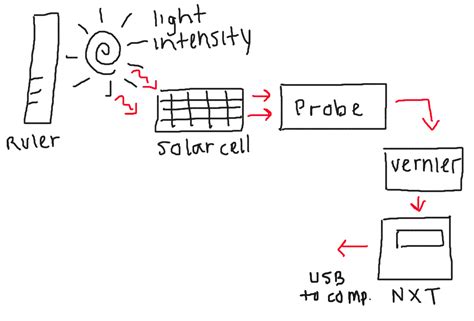 light
intensity
Ruler
solar cell
Probe
vernier
NXT
USB
to comp.